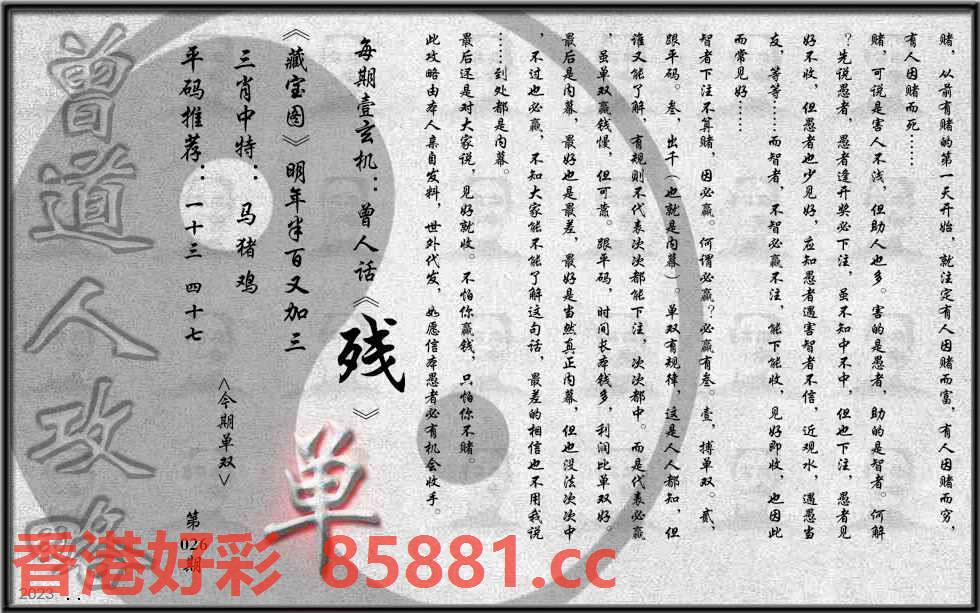 赌，从前有赌的第一天开始，就注定有人因赌而富，有人因赌而穷，
有人因赌而死……
赌，可说是害人不浅，但助人也多。害的是愚者，助的是智者。何解
？先说愚者，愚者逢开奖必下注，虽不知中不中，但也下注，愚者见
好不收，但愚者也少见好，应知愚者遇害智者不信，近观水，遇愚当
友，等等……而智者，不智必赢不注，能下能收，见好即收，也因此
而常见好……
智者下注不算赌，因必赢。何谓必赢？必赢有叁。壹，搏单双。贰，
跟平码。叁，出千（也就是内幕）。单双有规律，这是人人都知，但
谁又能了解，有规则不代表次次都能下注，次次都中。而是代表必赢
，虽单双赢钱慢，但可靠。跟平码，时间长本钱多，利润比单双好。
最后是内幕，最好也是最差，最好是当然真正内幕，但也没法次次中
，不过也必赢，不知大家能不能了解这句话，最差的相信也不用我说
……到处都是内幕。
最后还是对大家说，见好就收。不怕你赢钱，只怕你不赌。
此攻略由本人亲自发料，世外代发，如愿信本愚者必有机会收手。
每期壹玄机：曾人话《残》
《藏宝图》明年半百又加三
三肖中特：马猪鸡
平码推荐：一十三 四十七
<今期单双>
单
第026期
曾道人攻略
香港好彩 85881.cc
2023